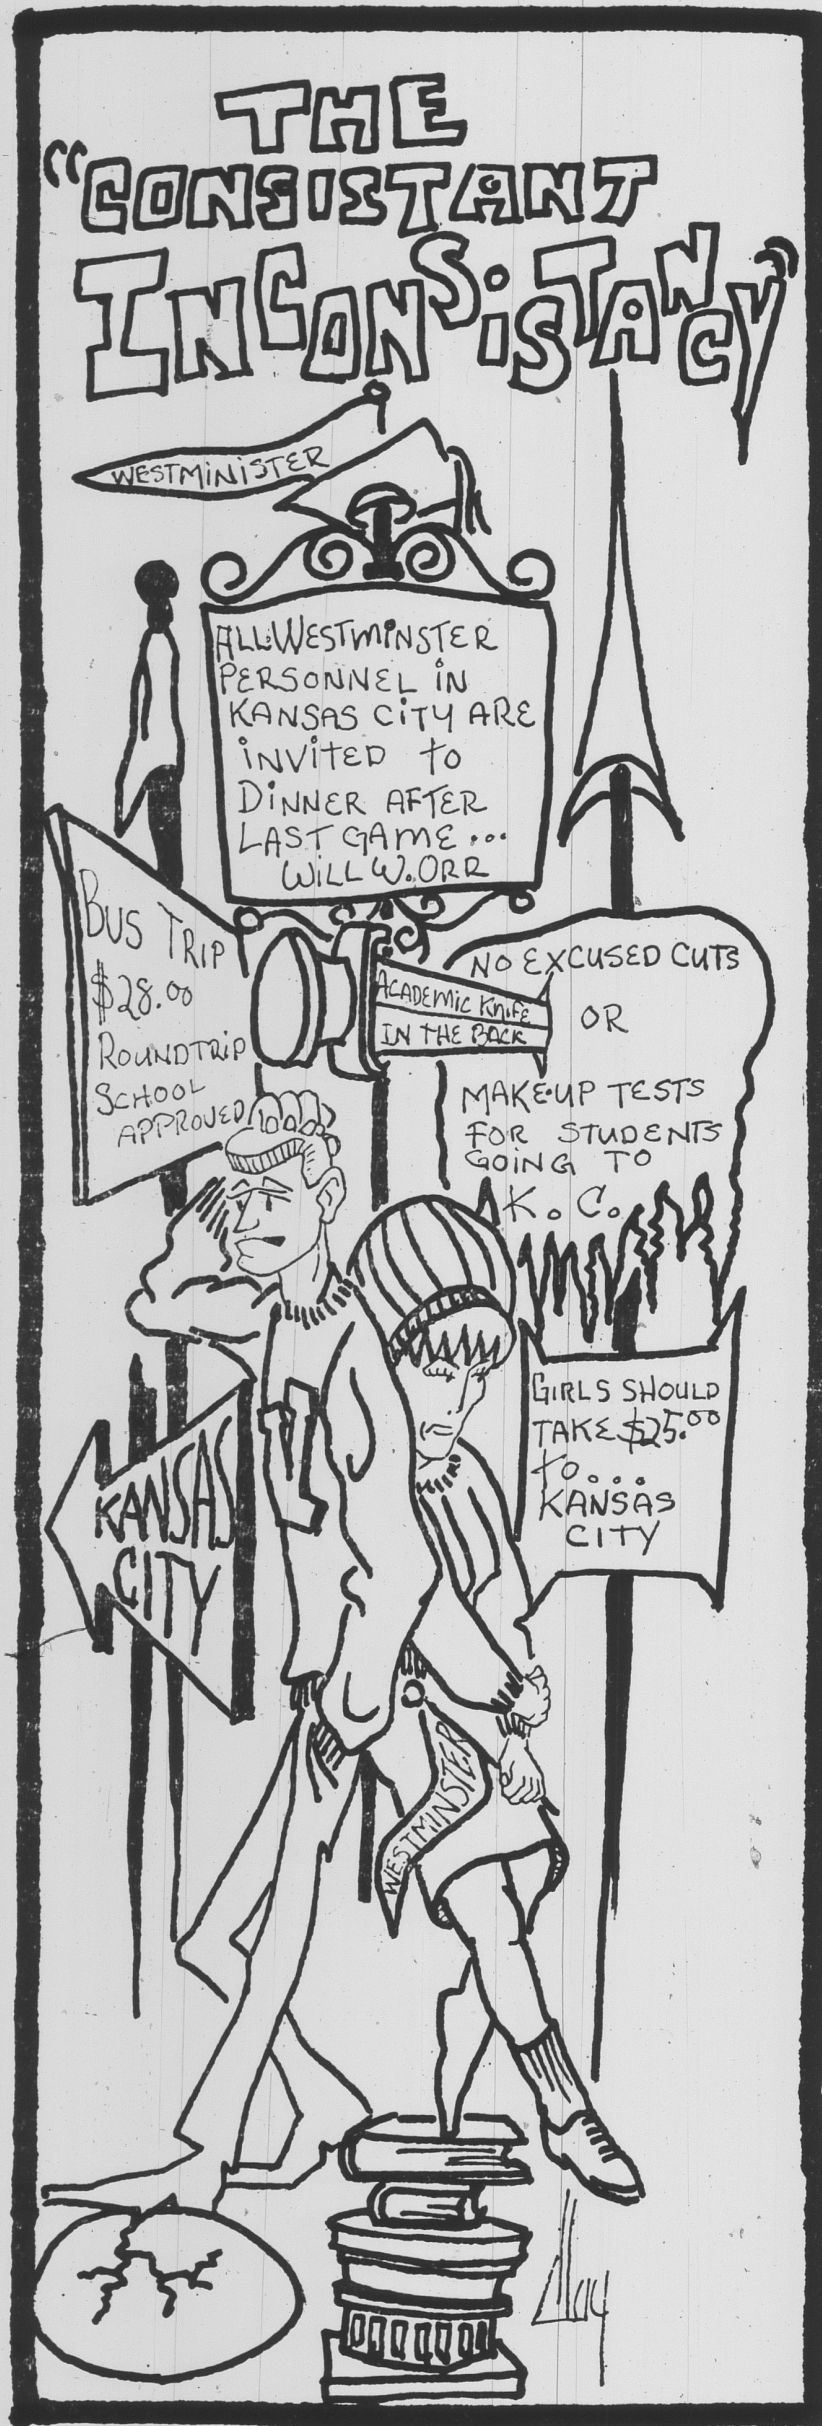 THE
"CONSISTANT
INCONSISTANCY"
WESTMINISTER
ALL WESTMINSTER
PERSONNEL IN
KANSAS CITY ARE
INVITED TO
DINNER AFTER
LAST GAME ...
WILL W. ORR
BUS TRIP
$28.00
ROUNDTRIP
SCHOOL
APPROVED
ACADEMIC KNIFE
IN THE BACK
NO EXCUSED CUTS
OR
MAKE-UP TESTS
FOR STUDENTS
GOING TO
K. C.
GIRLS SHOULD
TAKE $25.00
TO....
KANSAS
CITY
KANSAS
CITY
W
WESTMINSTER